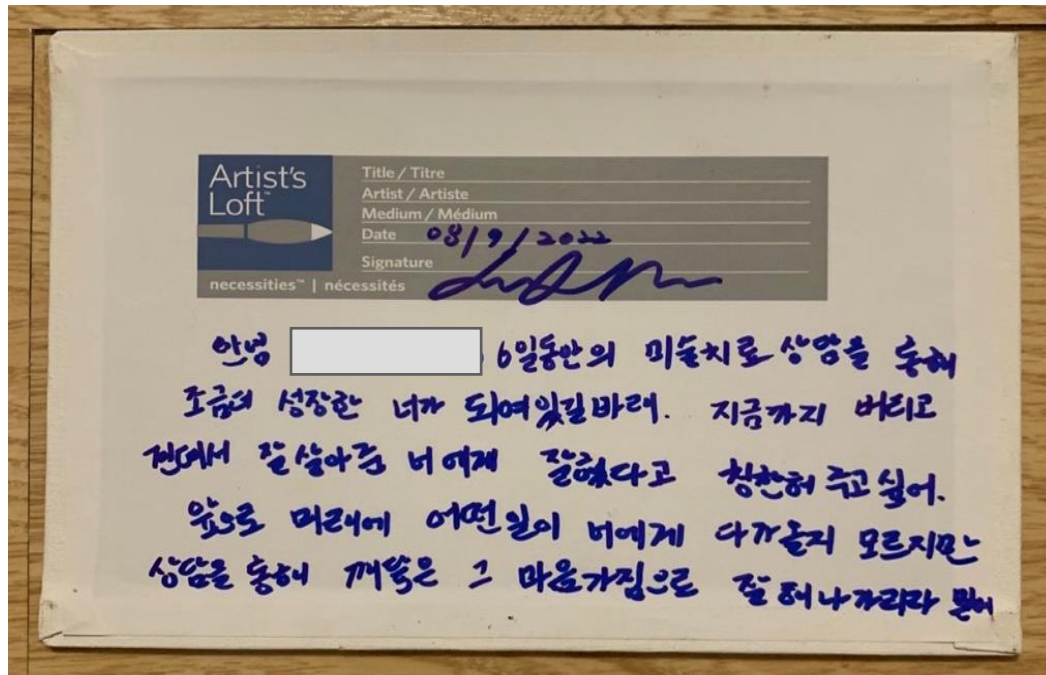 Artist's
Loft™
necessities™ | nécessités
Title / Titre
Artist / Artiste
Medium / Médium
Date 08/9/2022
Signature
안녕 6일동안의 미술치료 상담을 통해
조금더 성장한 너가 되여있길바래. 지금까지 버티고
견뎌서 잘살아준 너에게 잘했다고 칭찬해 주고싶어.
앞으로 미래에 어떤일이 너에게 다가올지 모르지만
상담을 통해 깨달은 그 마음가짐으로 잘 해나가리라 믿어